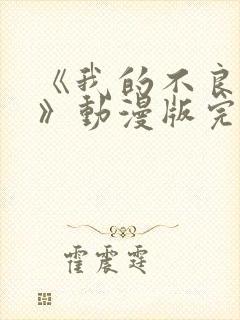 《我的不良
》動漫版完
霍震霆